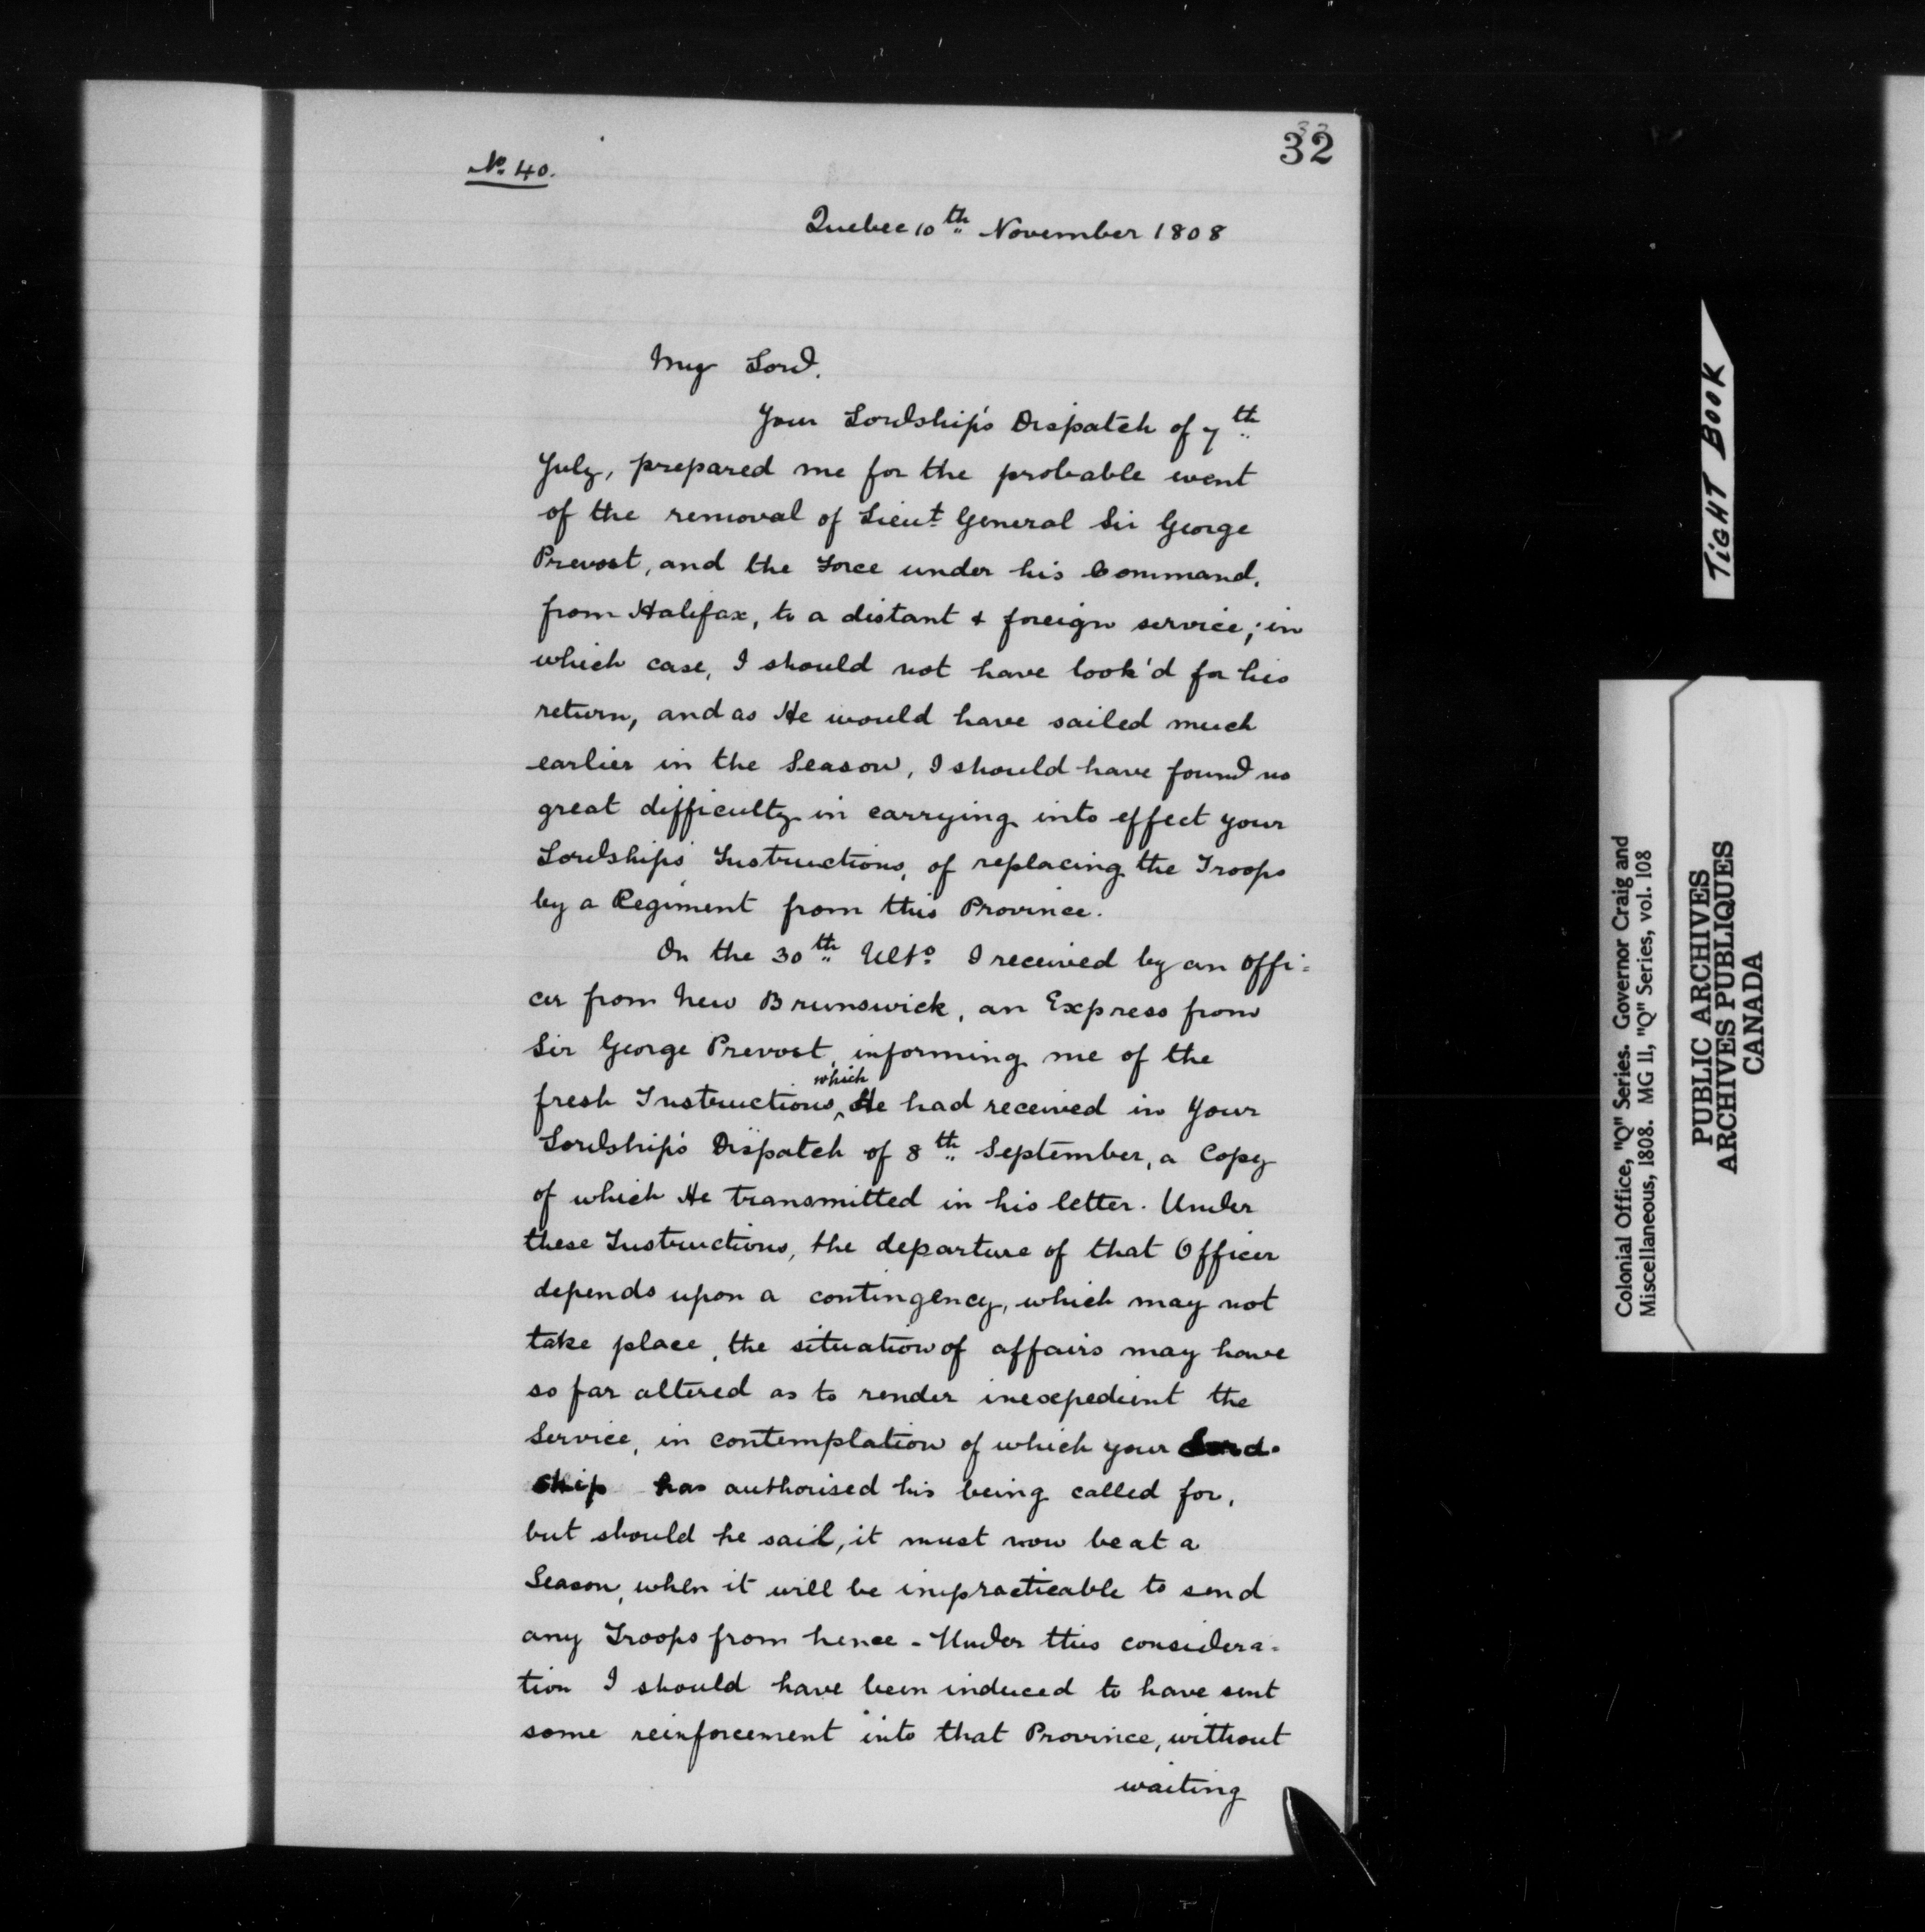 32
33
No. 40.
Quebec 10th November 1808
My Lord.
Your Lordship's Dispatch of 7th
July, prepared me for the probable event
of the removal of Lieut General Sir George
Prevost, and the Force under his Command,
from Halifax, to a distant & foreign service; in
which case, I should not have look'd for his
return, and as He would have sailed much
earlier in the Season, I should have found no
great difficulty in carrying into effect your
Lordships' Instructions, of replacing the Troops
by a Regiment from this Province.
On the 30th Ulto. I received by an Offi=
cer from New Brunswick, an Express from
Sir George Prevost, informing me of the
which
fresh Instructions, ^ He had received in Your
Lordship's Dispatch of 8th September, a Copy
of which He transmitted in his letter. Under
these Instructions, the departure of that Officer
depends upon a contingency, which may not
take place, the situation of affairs may have
so far altered as to render inexpedient the
Service, in contemplation of which your Lord-
ship has authorised his being called for,
but should he sail, it must now be at a
Season, when it will be impracticable to send
any Troops from hence - Under this considera=
tion I should have been induced to have sent
some reinforcement into that Province, without
waiting
TIGHT BOOK
Colonial Office, "Q" Series. Governor Craig and
Miscellaneous, 1808. MG 11, "Q" Series, vol. 108
PUBLIC ARCHIVES
ARCHIVES PUBLIQUES
CANADA